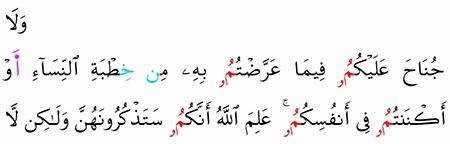 وَلَا
جُنَاحَ عَلَيْكُمُۥ فِيمَا عَرَّضْتُمُۥ بِهِۦ مِن خِطْبَةِ ٱلنِّسَآءِ أَوْ
أَكْنَنتُمُۥ فِى أَنفُسِكُمُۥ ۚ عَلِمَ ٱللَّهُ أَنَّكُمُۥ سَتَذْكُرُونَهُنَّ وَلَٰكِن لَّا